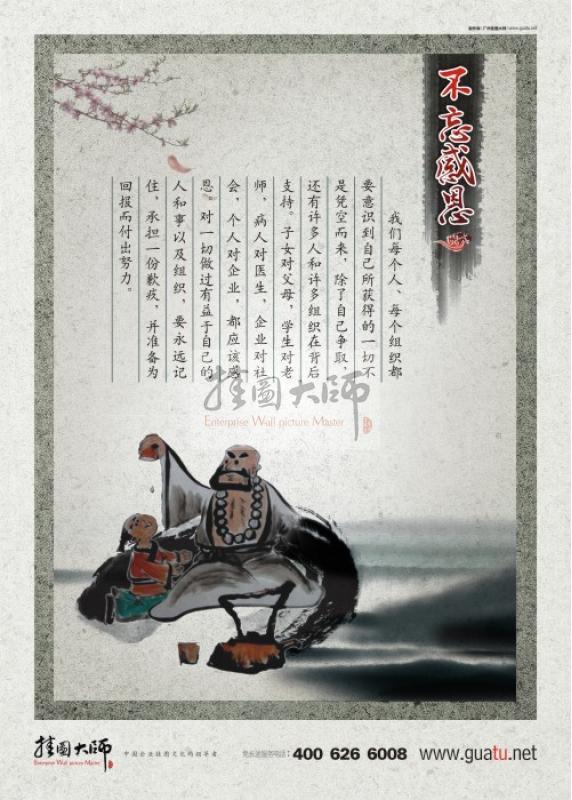 www.guatu.net
不忘感恩
我们每个人、每个组织都
要意识到自己所获得的一切不
是凭空而来，除了自己争取，
还有许多人和许多组织在背后
支持。子女对父母，学生对老
师，病人对医生，企业对社
会，个人对企业，都应该感
恩。对一切做过有益于自己的
人和事以及组织，要永远记
住，承担一份歉疚，并准备为
回报而付出努力。
挂圖大师
Enterprise Wall picture Master
挂圖大师
Enterprise Wall picture Master
中国企业挂图文化的领导者
免长途服务电话：400 626 6008
www.guatu.net